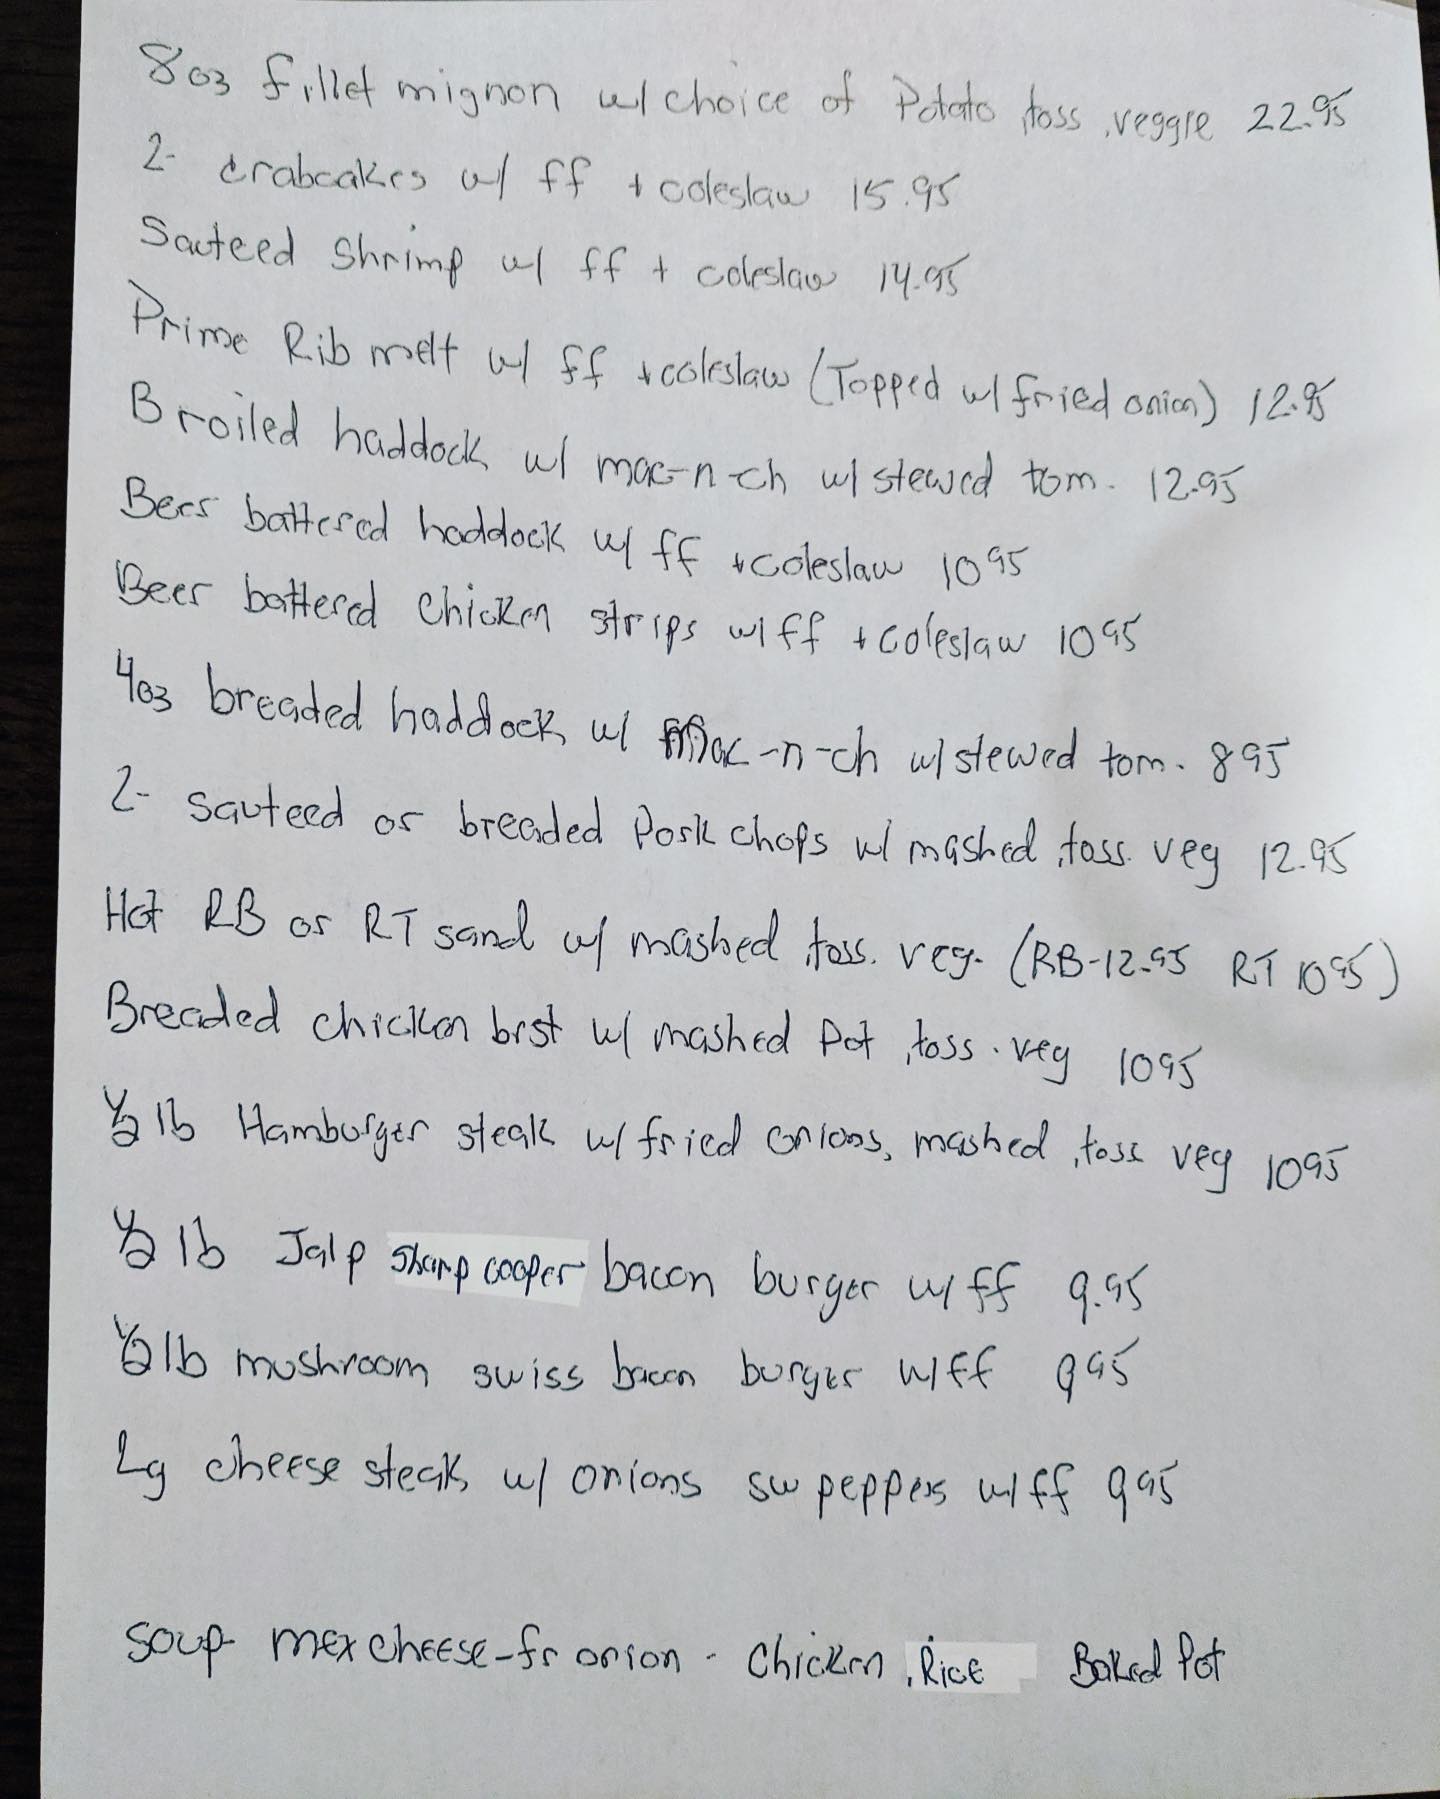 8oz fillet mignon w/ choice of Potato, toss, veggie 22.95
2- crabcakes w/ ff + coleslaw 15.95
Sauteed Shrimp w/ ff + coleslaw 14.95
Prime Rib melt w/ ff + coleslaw (Topped w/ fried onion) 12.95
Broiled haddock w/ mac-n-ch w/ stewed tom. 12.95
Beer battered haddock w/ ff + coleslaw 1095
Beer battered chicken strips w/ ff + coleslaw 1095
4oz breaded haddock w/ Mac-n-ch w/ stewed tom. 895
2- sauteed or breaded Pork chops w/ mashed, toss. veg 12.95
Hot RB or RT sand w/ mashed, toss. veg. (RB-12.95 RT 1095)
Breaded chicken brst w/ mashed Pot, toss. veg 1095
1/2 lb Hamburger steak w/ fried onions, mashed, toss veg 1095
1/2 lb Jalp sharp cooper bacon burger w/ ff 9.95
1/2 lb mushroom swiss bacon burger w/ ff 995
Lg cheese steak w/ onions sw peppers w/ ff 995
Soup- mex cheese-fr onion - Chicken, Rice Baked Pot